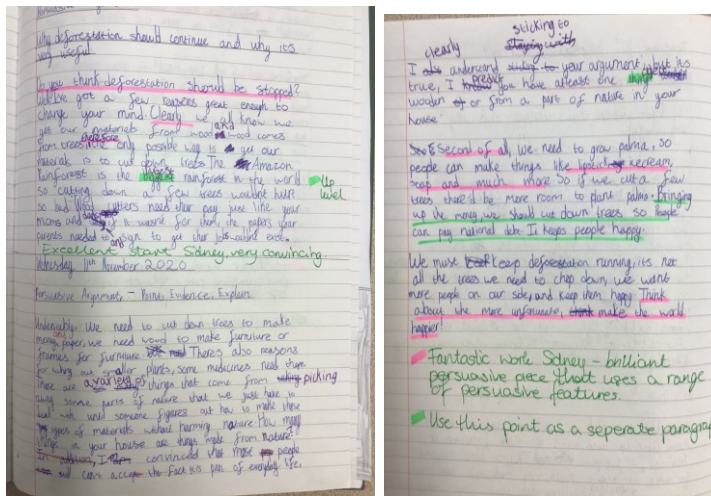 Why deforestation should continue and why its
very useful.
Do you think deforestation should be stopped?
We've got a few reasons great enough to
change your mind. Clearly we all know we
get our materials from wood and wood comes
from trees, therefore the only possible way is to get our
materials is to cut down trees. The Amazon
Rainforest is the rainforest in the world
Up level
so cutting down a few trees wouldn't hurt
so bad. Wood cutters need their pay just like your
moms and if it wasne for them, the papers your
parents needed to sign to get their job wouldne exist.
Excellent start Sidney, very convincing.
Wednesday 11th November 2020
Persuasive Argument, - Point, Evidence, Explain
Undeniably, We need to cut down trees to make
money, paper, we need wood to make furniture or
frames for furniture. Theres also reasons
for why our smaller plants, some medicines need them
There are a variety of things that come from picking
away some parts of nature that we just have to
deal with until someone figures out how to make these
types of materials without harming nature. How many
things in your house are things made from nature?
In addition, I convinced that most people
cant accept the fact its part of everyday life.
sticking to
clearly
I understand your argument, but its
true, I predict you have atleast one
wooden or from a part of nature in your
house.
Second of all, we need to grow palma, so
people can make things like lipstick, icecream,
soap and much more. So if we cut a few
trees there'd be more room to plant palma. Bringing
up the money, we should cut down trees so people
can pay national debt. It keeps people happy.
We must keep deforestation running, its not
all the trees we need to chop down, we want
more people on our side, and keep them happy. Think
about the more unfortunate, make the world
happier!
Fantastic work Sidney - brilliant
persuasive piece that uses a range
of persuasive features.
Use this point as a seperate paragra